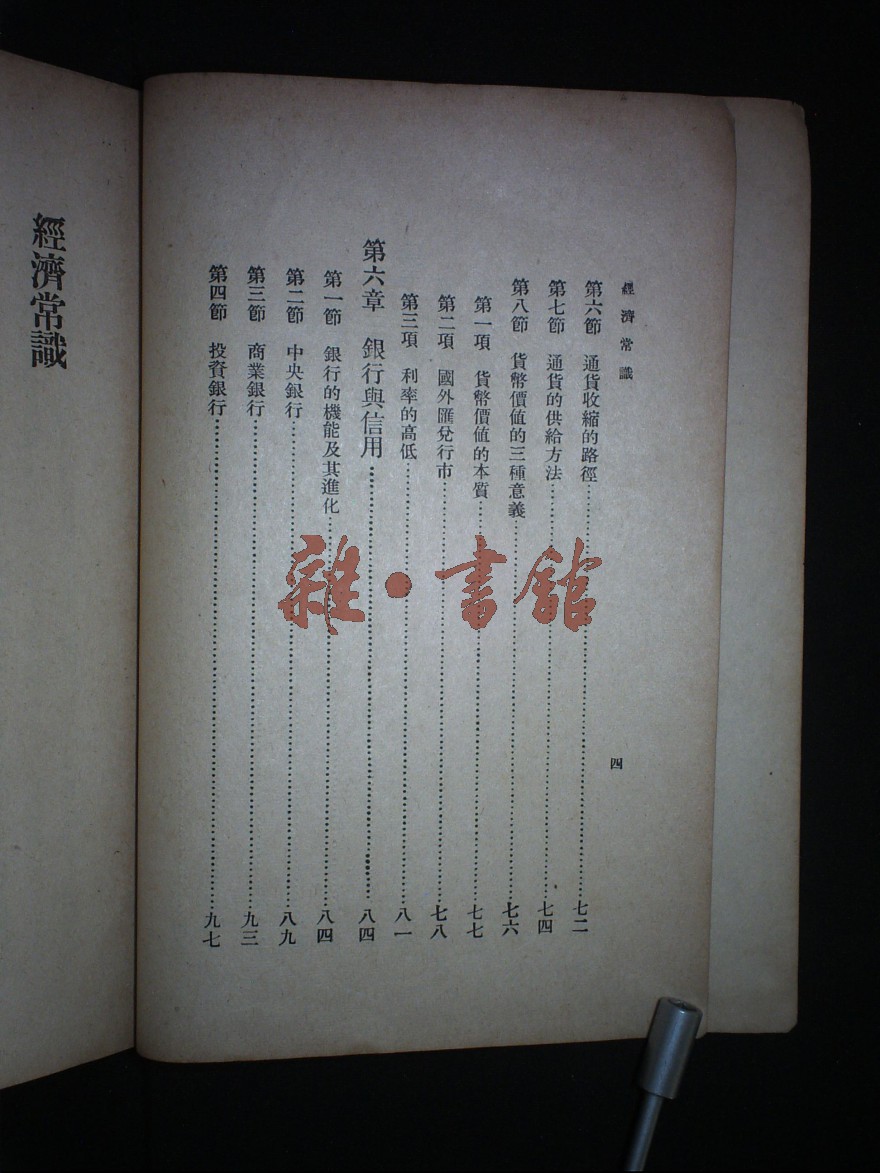 經濟常識
四
第六節 通貨收縮的路徑……七二
第七節 通貨的供給方法……七四
第八節 貨幣價值的三種意義……七六
第一項 貨幣價值的本質……七七
第二項 國外匯兌行市……七八
第三項 利率的高低……八一
第六章 銀行與信用……八四
第一節 銀行的機能及其進化……八四
第二節 中央銀行……八九
第三節 商業銀行……九三
第四節 投資銀行……九七
經濟常識
雜·書館